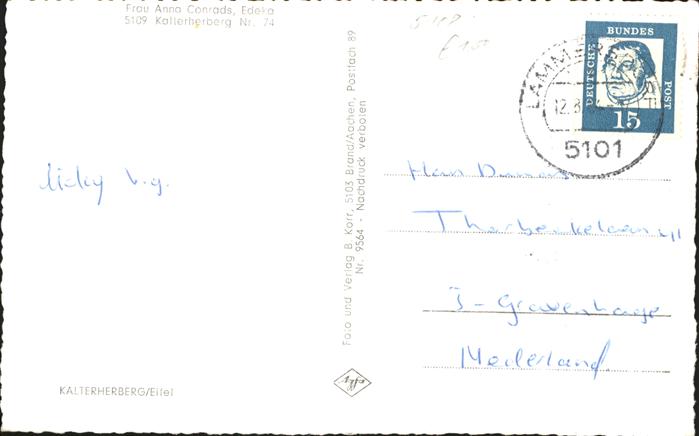 Frau Anna Conrads, Edeka
5109 Kalterherberg Nr. 74
DEUTSCHE BUNDES POST
15
LAMMERSDORF
12.8
5101
Foto und Verlag B. Korr, 5103 Brand/Aachen, Postfach 89
Nr. 9564 - Nachdruck verboten
V.g.
Thorbeckelaan
S-Gravenhage
Nederland.
KALTERHERBERG/Eifel
Agfa